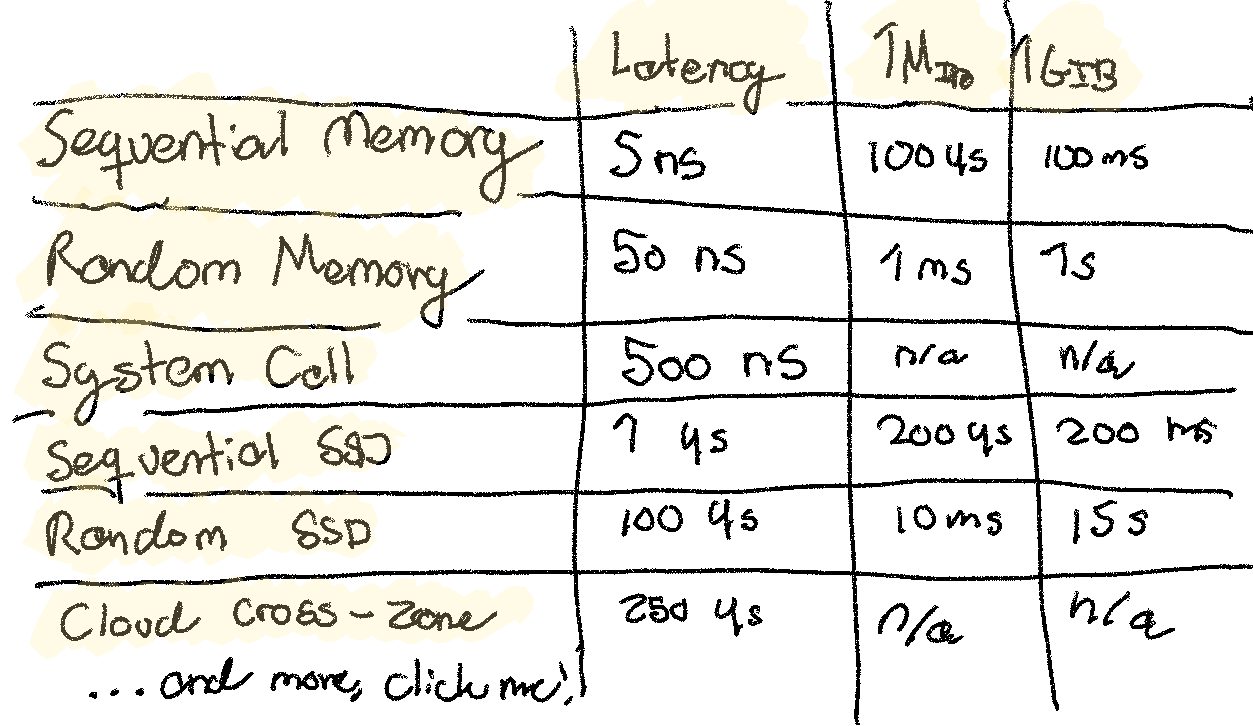 Latency 1 MiB 1 GiB
Sequential Memory 5 ns 100 μs 100 ms
Random Memory 50 ns 1 ms 1 s
System Call 500 ns n/a n/a
Sequential SSD 1 μs 200 μs 200 ms
Random SSD 100 μs 10 ms 15 s
Cloud Cross-Zone 250 μs n/a n/a
... and more, click me!